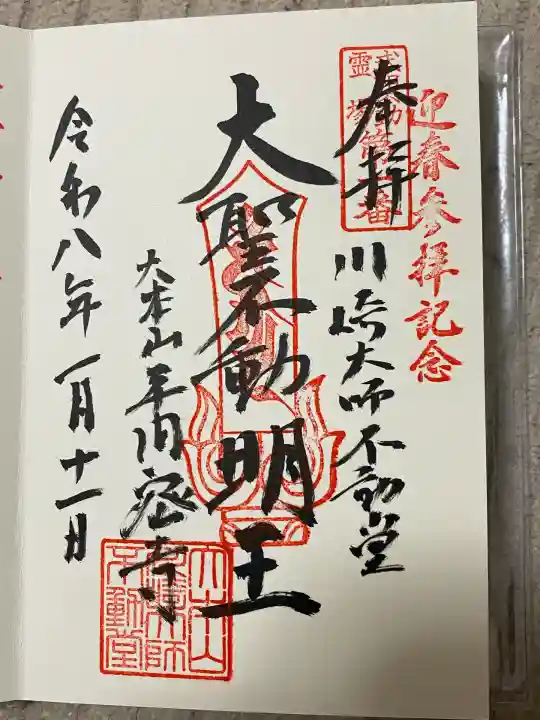 迎春参拝記念
奉拝
川崎大師不動堂
大聖不動明王
大本山平間密寺
令和八年一月十一日
大本山
川崎大師
不動堂